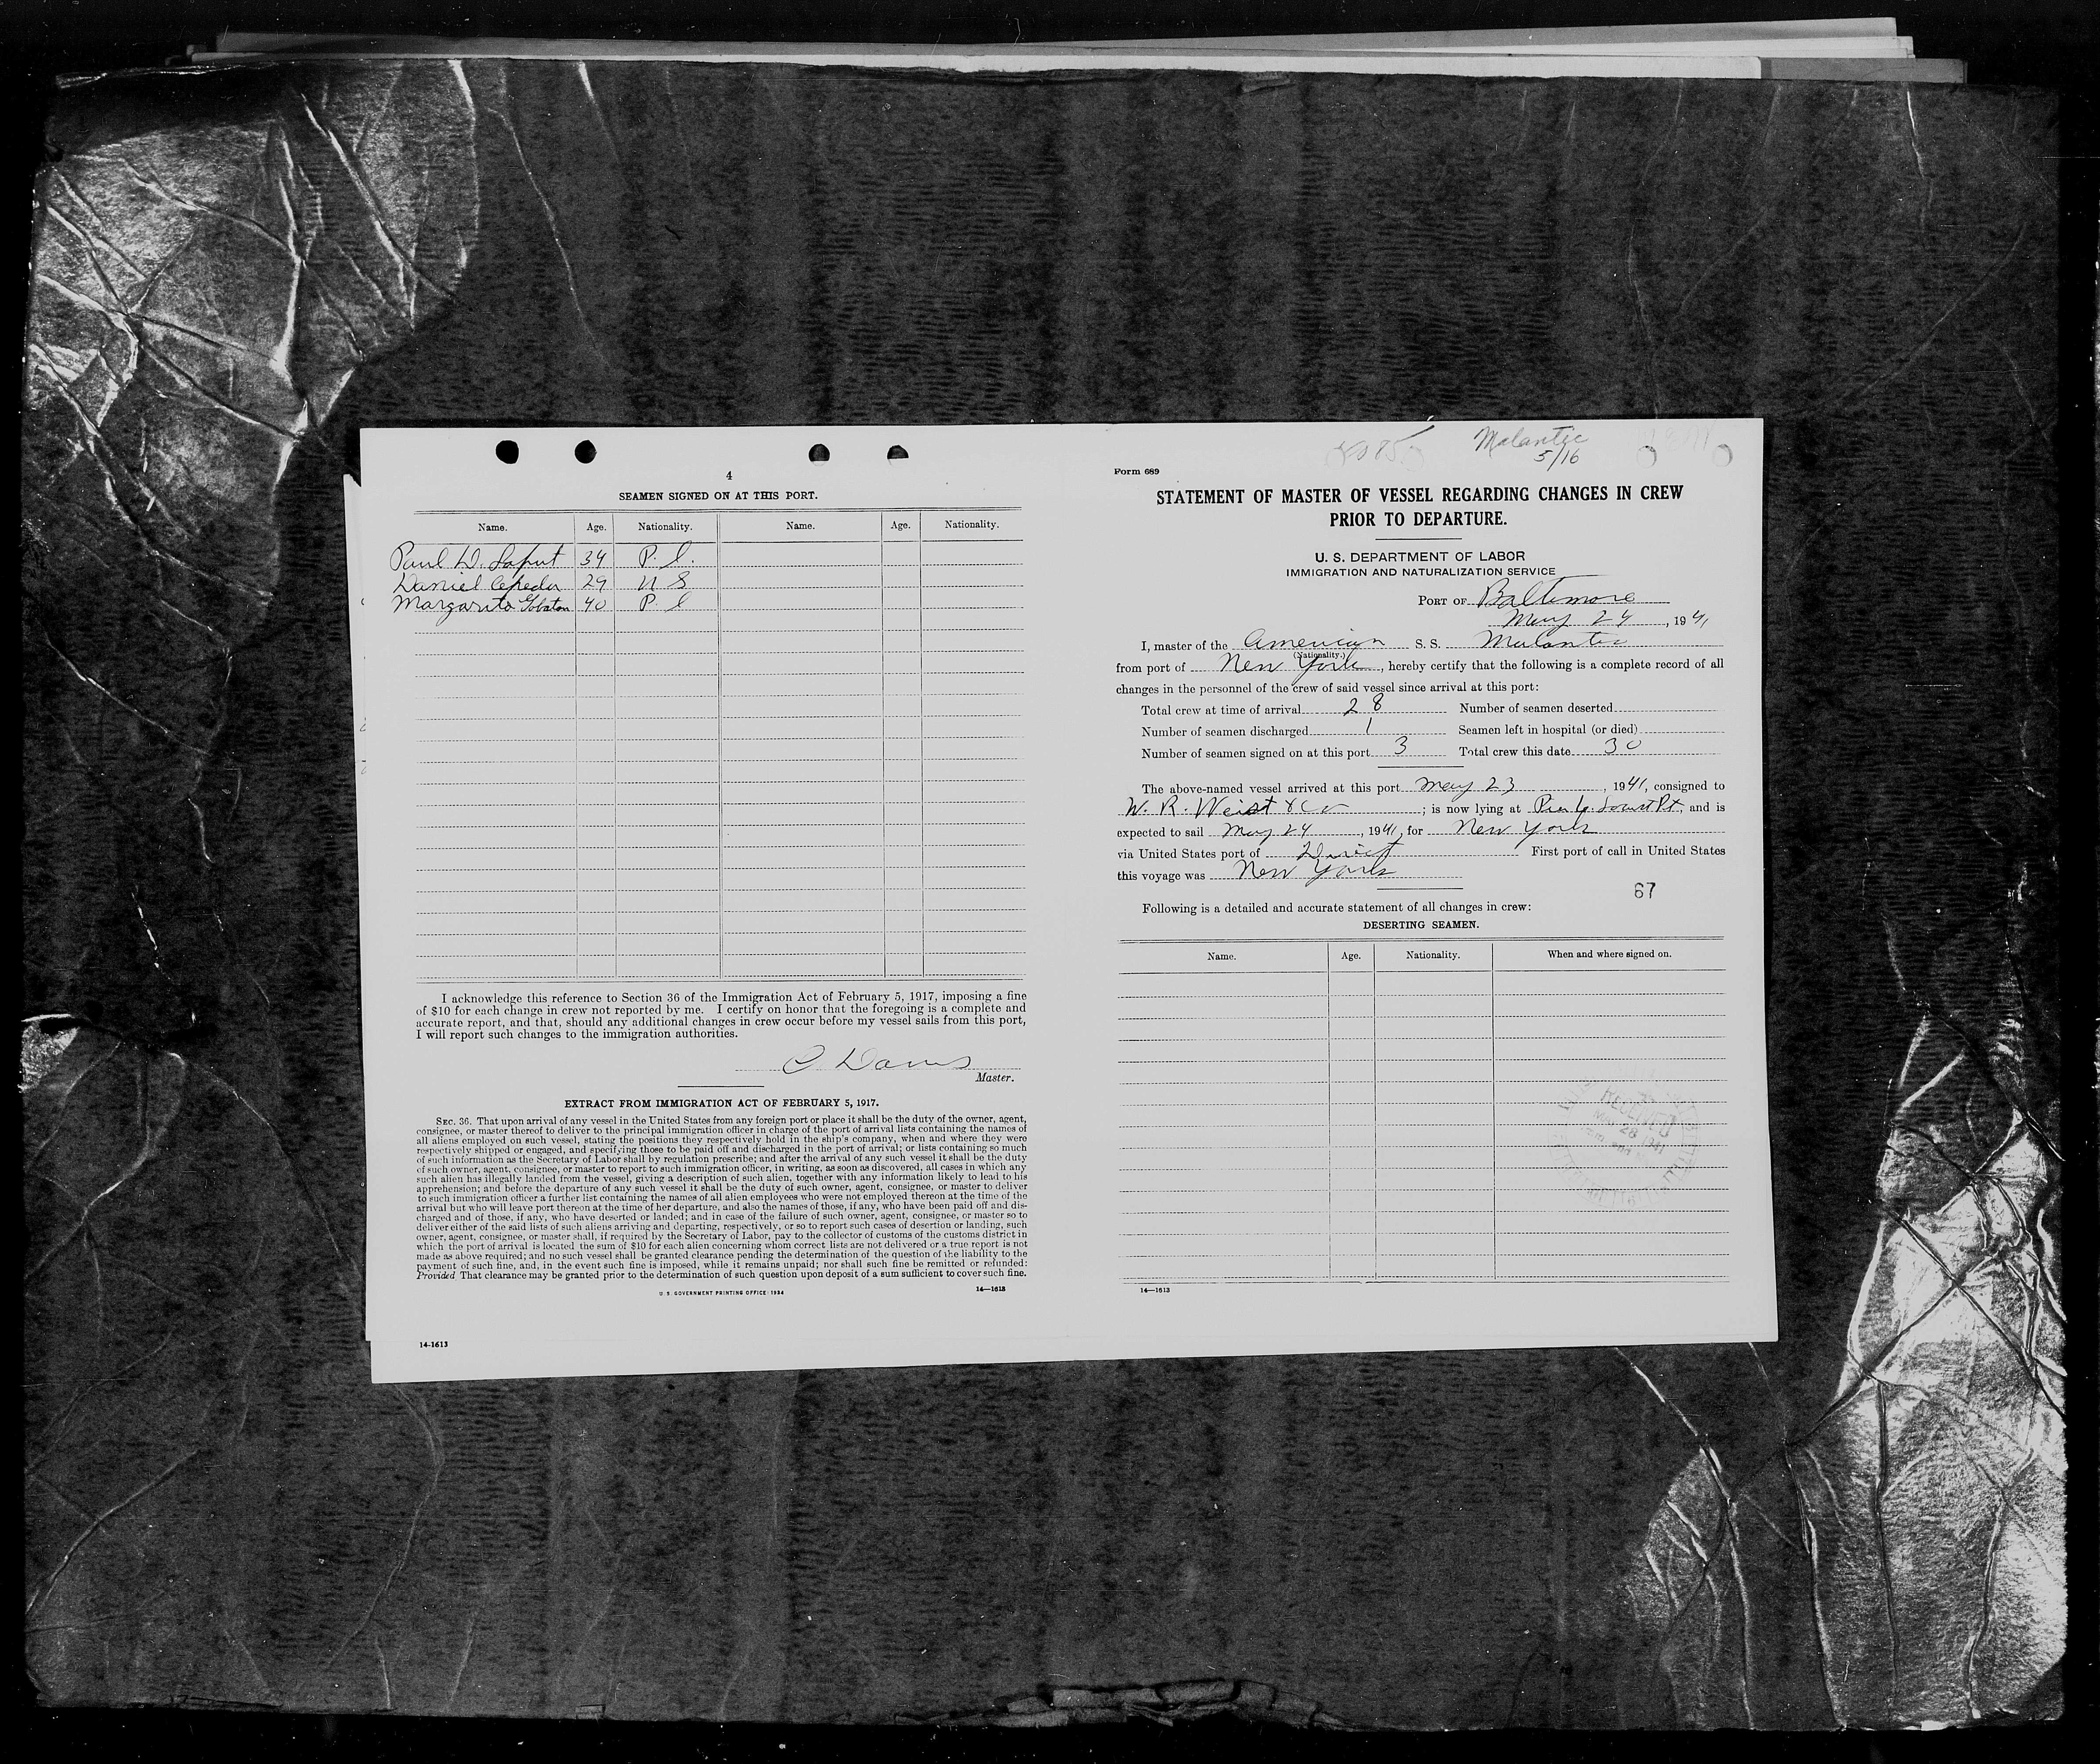 4
SEAMEN SIGNED ON AT THIS PORT.
Name. Age. Nationality. Name. Age. Nationality.
Paul D. Laput 34 P. I.
Daniel Cepeda 29 U S
Margarito 40 P. I
I acknowledge this reference to Section 36 of the Immigration Act of February 5, 1917, imposing a fine
of $10 for each change in crew not reported by me. I certify on honor that the foregoing is a complete and
accurate report, and that, should any additional changes in crew occur before my vessel sails from this port,
I will report such changes to the immigration authorities.
C. Davis
Master.
EXTRACT FROM IMMIGRATION ACT OF FEBRUARY 5, 1917.
SEC. 36. That upon arrival of any vessel in the United States from any foreign port or place it shall be the duty of the owner, agent,
consignee, or master thereof to deliver to the principal immigration officer in charge of the port of arrival lists containing the names of
all aliens employed on such vessel, stating the positions they respectively hold in the ship's company, when and where they were
respectively shipped or engaged, and specifying those to be paid off and discharged in the port of arrival; or lists containing so much
of such information as the Secretary of Labor shall by regulation prescribe; and after the arrival of any such vessel it shall be the duty
of such owner, agent, consignee, or master to report to such immigration officer, in writing, as soon as discovered, all cases in which any
such alien has illegally landed from the vessel, giving a description of such alien, together with any information likely to lead to his
apprehension; and before the departure of any such vessel it shall be the duty of such owner, agent, consignee, or master to deliver
to such immigration officer a further list containing the names of all alien employees who were not employed thereon at the time of the
arrival but who will leave port thereon at the time of her departure, and also the names of those, if any, who have been paid off and dis-
charged and of those, if any, who have deserted or landed; and in case of the failure of such owner, agent, consignee, or master so to
deliver either of the said lists of such aliens arriving and departing, respectively, or so to report such cases of desertion or landing, such
owner, agent, consignee, or master shall, if required by the Secretary of Labor, pay to the collector of customs of the customs district in
which the port of arrival is located the sum of $10 for each alien concerning whom correct lists are not delivered or a true report is not
made as above required; and no such vessel shall be granted clearance pending the determination of the question of the liability to the
payment of such fine, and, in the event such fine is imposed, while it remains unpaid; nor shall such fine be remitted or refunded:
Provided That clearance may be granted prior to the determination of such question upon deposit of a sum sufficient to cover such fine.
U. S. GOVERNMENT PRINTING OFFICE: 1934 14—1613
14-1613
Malantic
5/16
Form 689
STATEMENT OF MASTER OF VESSEL REGARDING CHANGES IN CREW
PRIOR TO DEPARTURE.
U. S. DEPARTMENT OF LABOR
IMMIGRATION AND NATURALIZATION SERVICE
PORT OF Baltimore
May 24, 1941
I, master of the American S. S. Malantic
(Nationality.)
from port of New York, hereby certify that the following is a complete record of all
changes in the personnel of the crew of said vessel since arrival at this port:
Total crew at time of arrival 28 Number of seamen deserted
Number of seamen discharged 1 Seamen left in hospital (or died)
Number of seamen signed on at this port 3 Total crew this date 30
The above-named vessel arrived at this port May 23, 1941, consigned to
W. R. Weist & Co; is now lying at Pier Locust Pt, and is
expected to sail May 24, 1941, for New York
via United States port of Direct First port of call in United States
this voyage was New York
67
Following is a detailed and accurate statement of all changes in crew:
DESERTING SEAMEN.
Name. Age. Nationality. When and where signed on.
RECEIVED
MAY 28 1941
14—1613